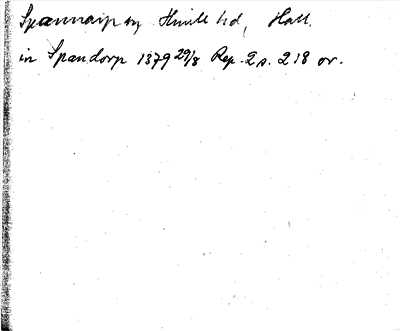 Spannarp sn Himle hd, Hall.
in Spandorp 1379 29/8 Rep. 2 s. 218 or.